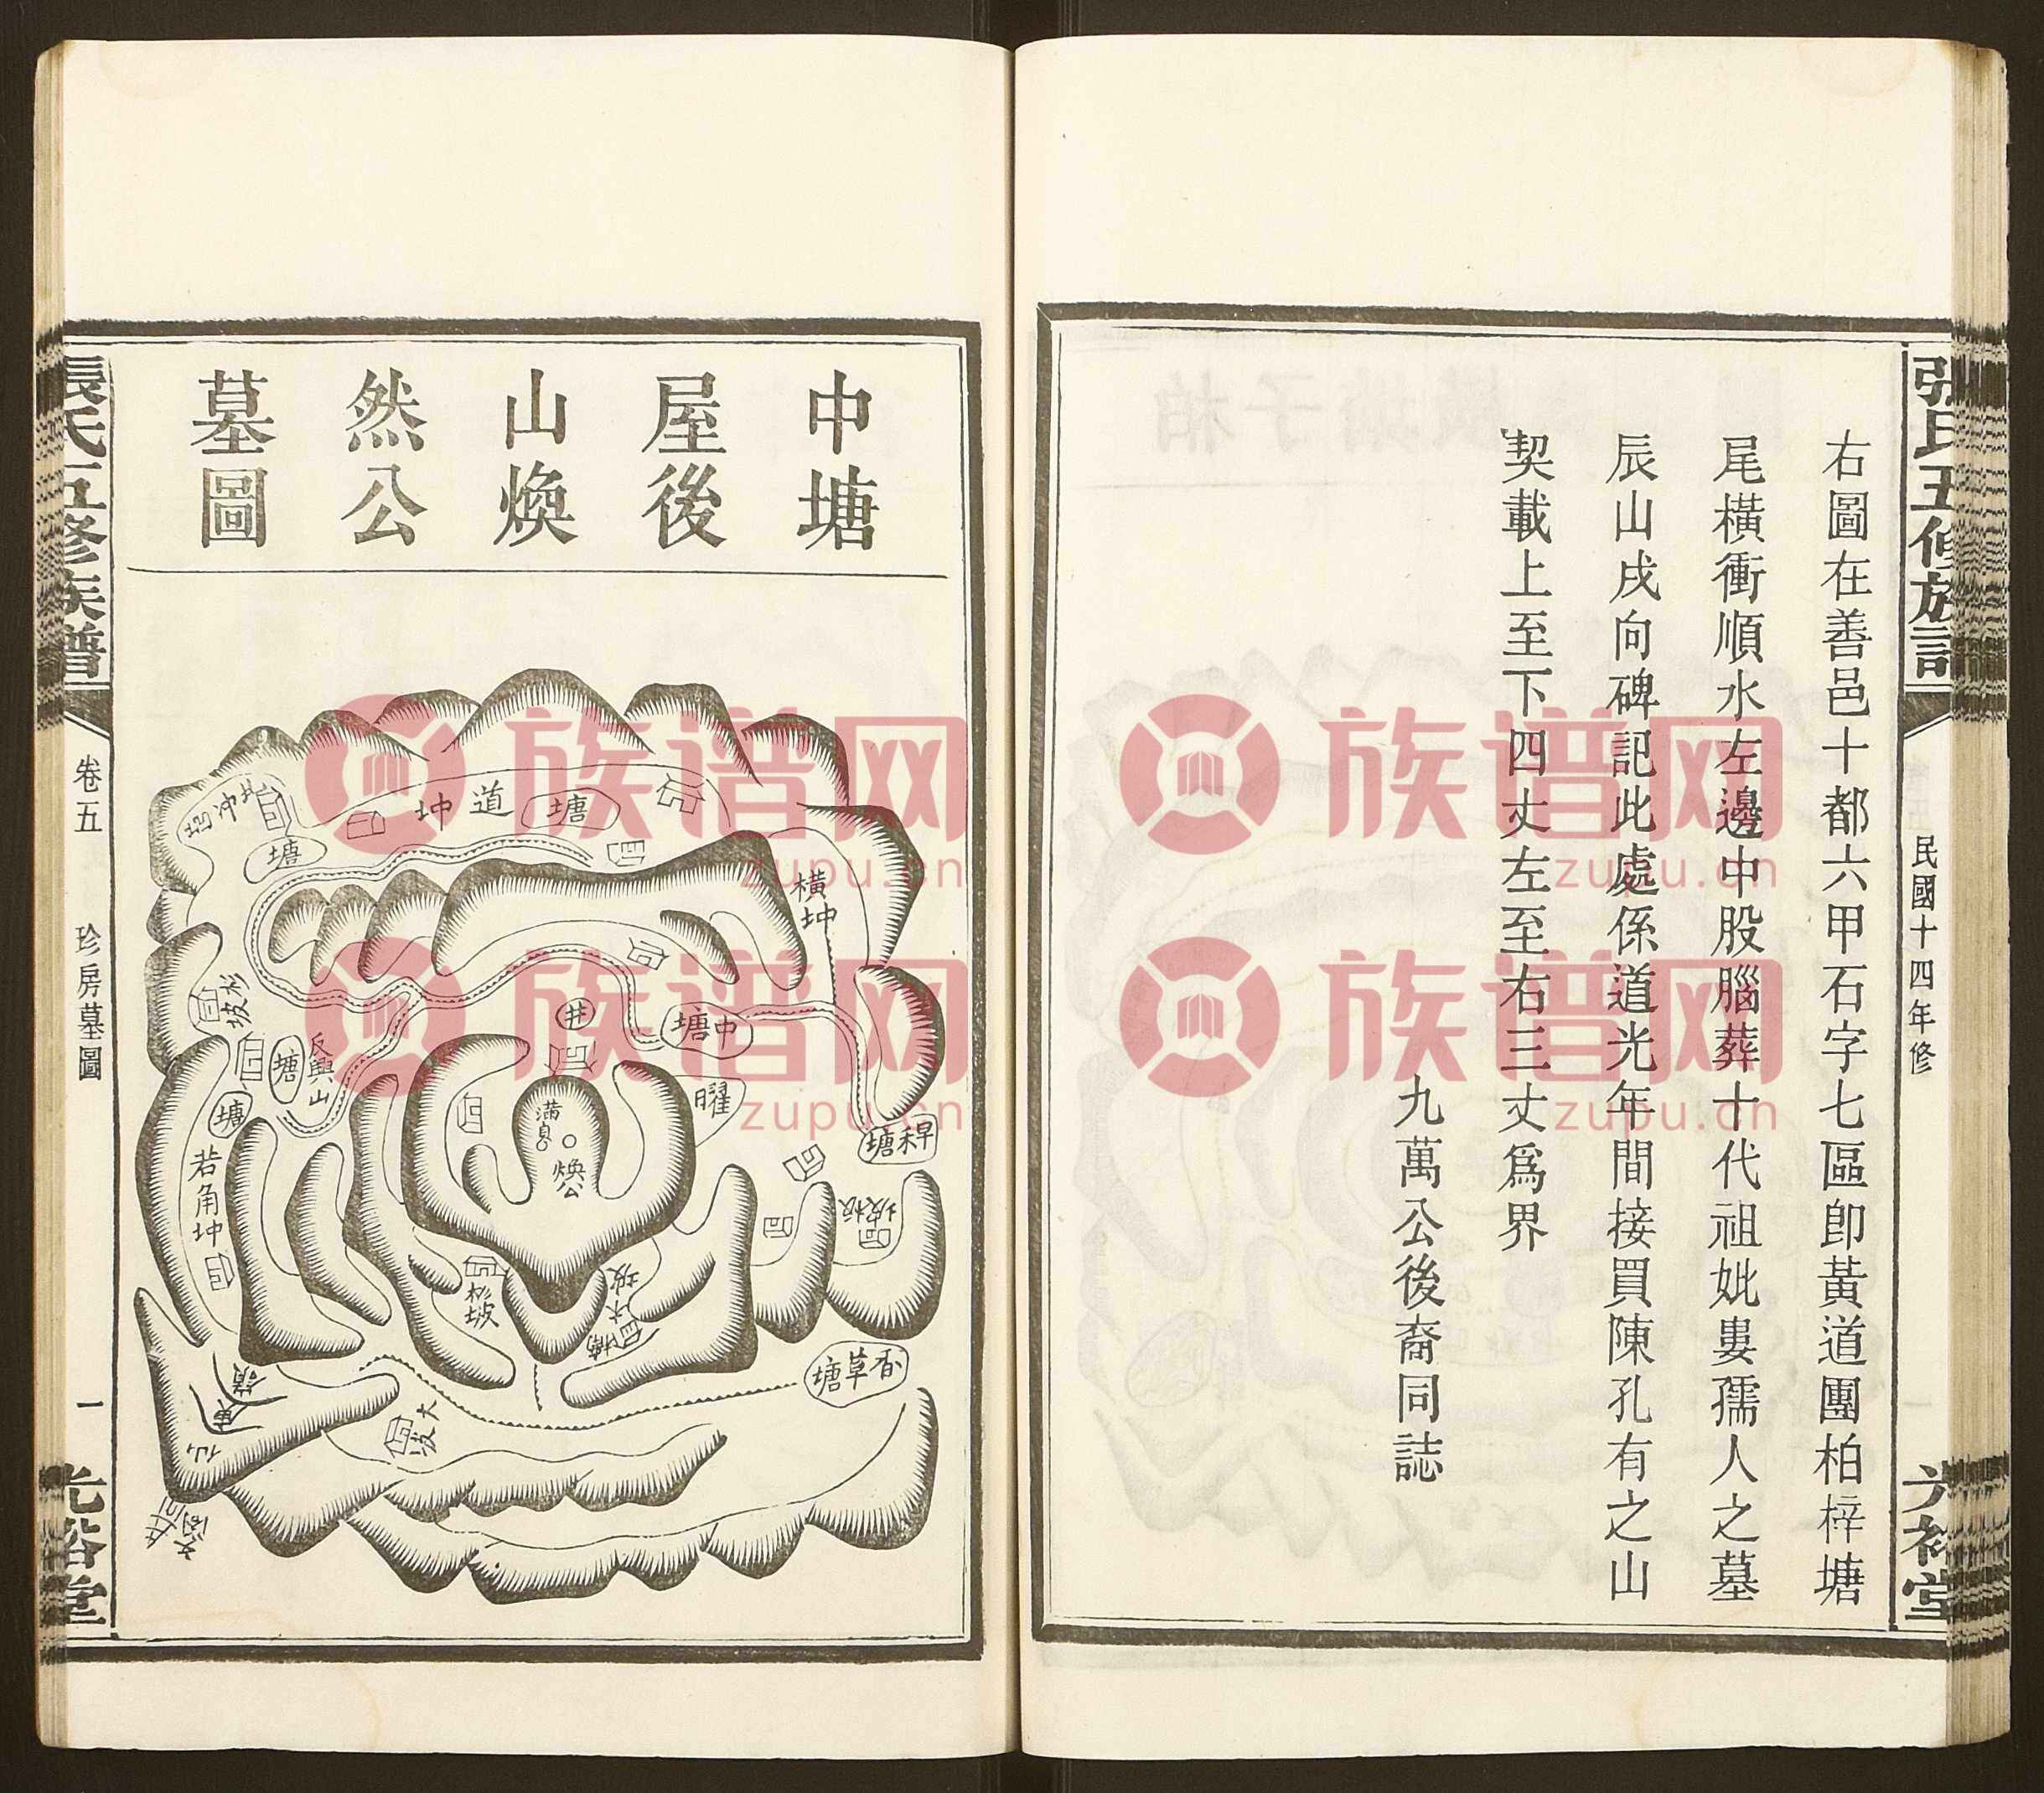 張氏五修族譜
民國十四年修
光裕堂
右圖在善邑十都六甲石字七區卽黃道團柏梓塘
尾橫衝順水左邊中股腦葬十代祖妣婁孺人之墓
辰山戌向碑記此處係道光年間接買陳孔有之山
契載上至下四丈左至右三丈爲界
九萬公後裔同誌
中塘
屋後
山煥
然公
墓圖
塘
道
坤
塘
橫坤
杉坡
井
中塘
反興山
塘
塘
滿
煥公
曜
旱禾塘
若角坤
板坡
杉坡
木坡
香草塘
大坡
仙
嶺
張氏五修族譜
卷五
珍房墓圖
一
光裕堂
族谱网
zupu.cn
族谱网
zupu.cn
族谱网
zupu.cn
族谱网
zupu.cn